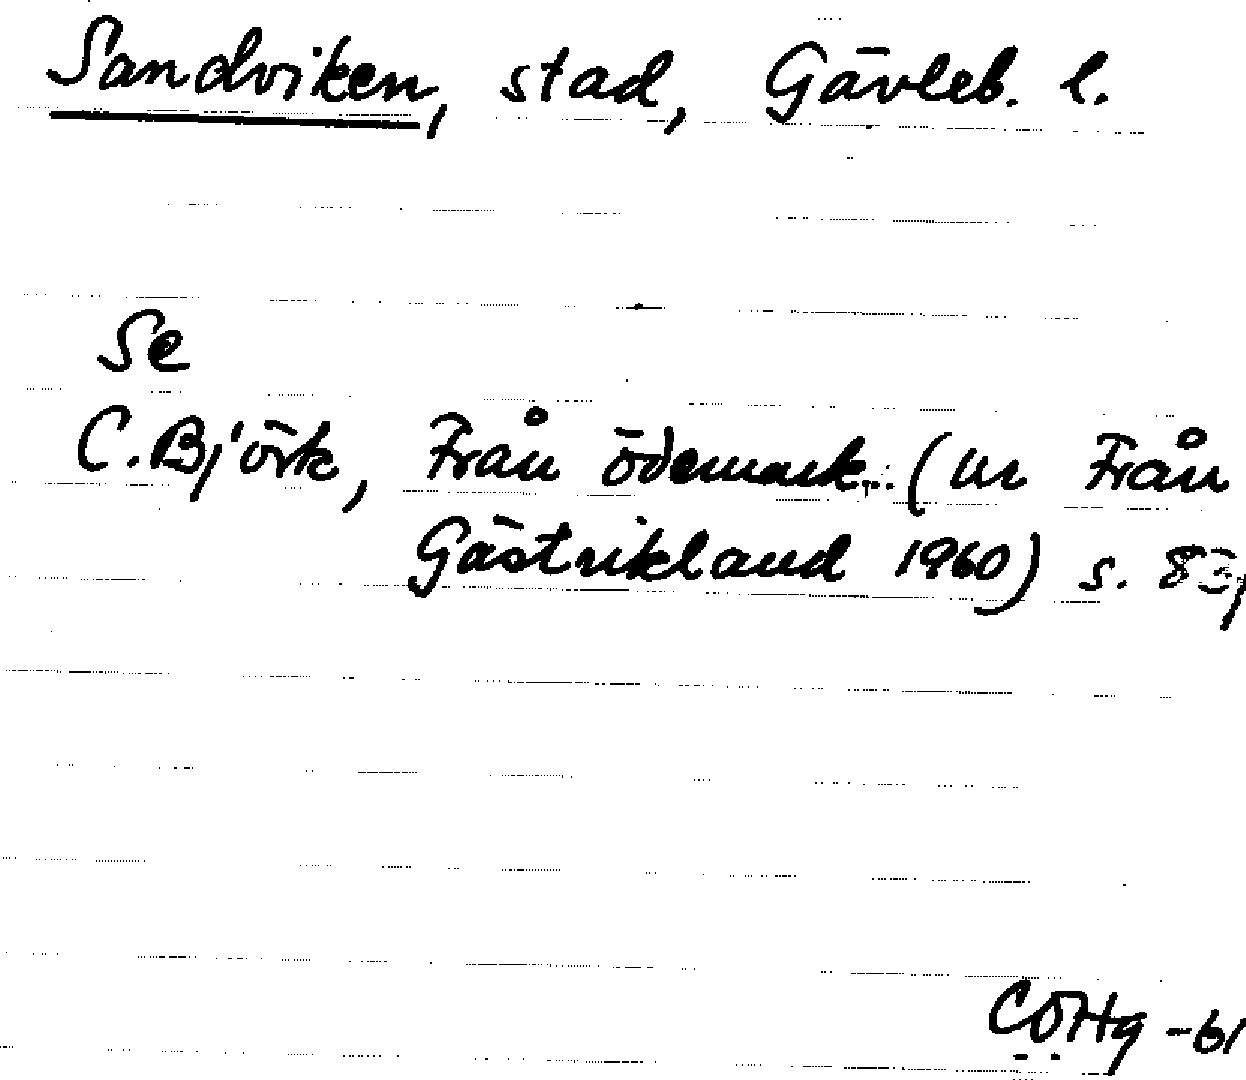 Sandviken, stad, Gävleb. l.
Se
C. Björk, Från ödemark... (ur Från
Gästrikland 1960) s. 83,
COHg -61